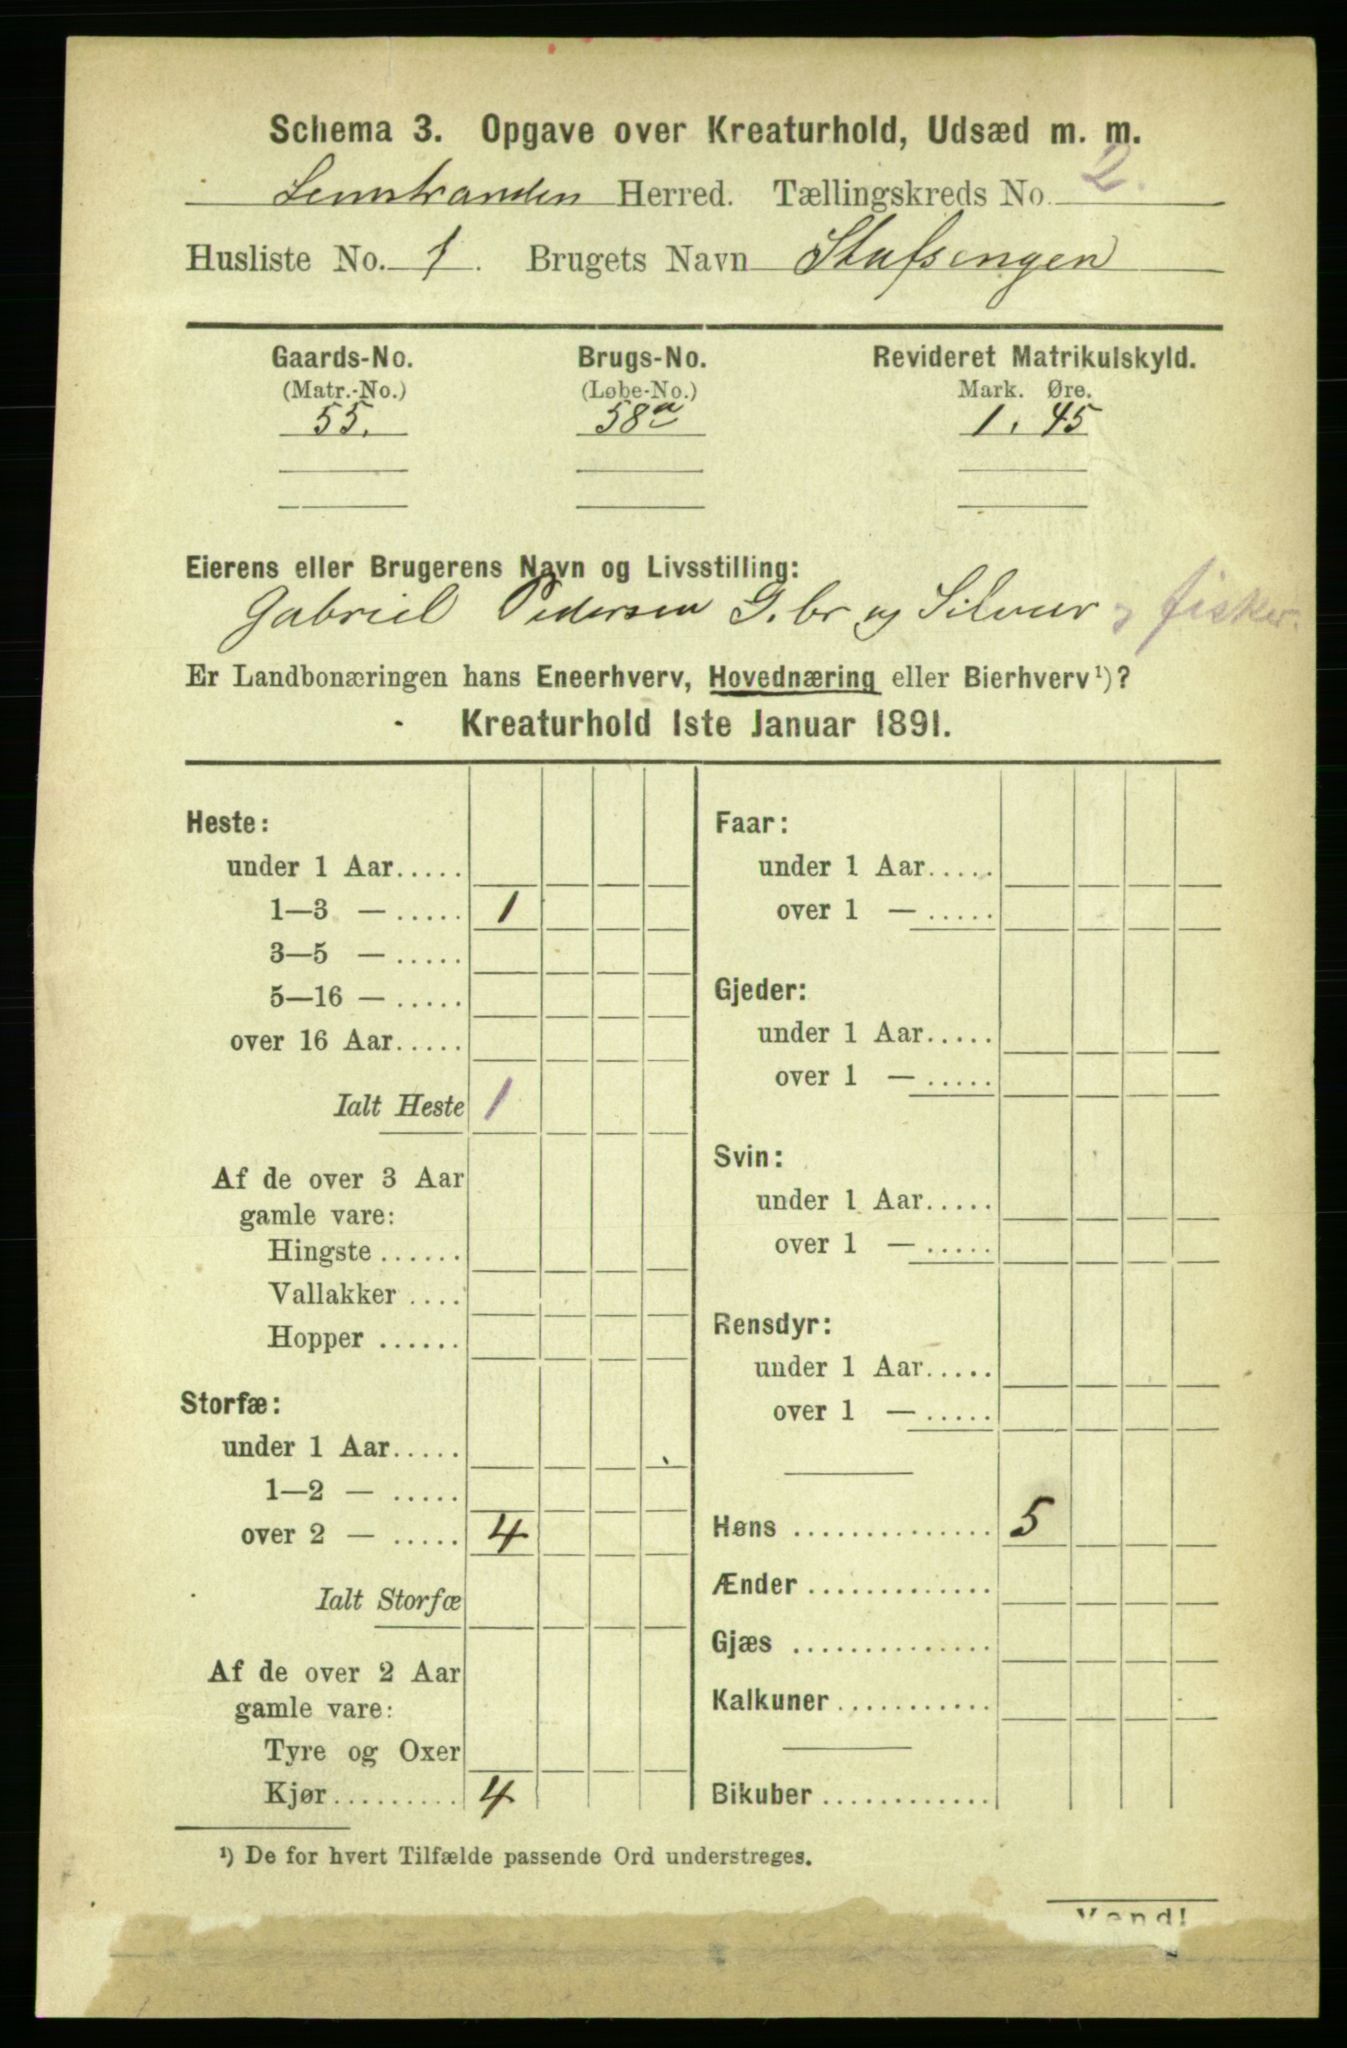 Schema 3. Opgave over Kreaturhold, Udsæd m. m.
Lenstranden Herred. Tællingskreds No. 2.
Husliste No. 1. Brugets Navn Stufsengen
Gaards-No. Brugs-No. Revideret Matrikulskyld.
(Matr.-No.) (Løbe-No.) Mark. Øre.
55. 58a 1. 45
Eierens eller Brugerens Navn og Livsstilling:
Gabriel Pedersen G.br og fisker.
Er Landbonæringen hans Eneerhverv, Hovednæring eller Bierhverv¹)?
Kreaturhold 1ste Januar 1891.
Heste:
under 1 Aar.....
1—3 — ..... 1
3—5 — .....
5—16 — .....
over 16 Aar.....
Ialt Heste 1
Af de over 3 Aar
gamle vare:
Hingste ......
Vallakker ....
Hopper ......
Storfæ:
under 1 Aar.....
1—2 — .....
over 2 — ..... 4
Ialt Storfæ
Af de over 2 Aar
gamle vare:
Tyre og Oxer
Kjør......... 4
Faar:
under 1 Aar.....
over 1 — .....
Gjeder:
under 1 Aar.....
over 1 — .....
Svin:
under 1 Aar.....
over 1 — .....
Rensdyr:
under 1 Aar.....
over 1 — .....
Høns .............. 5
Ænder .............
Gjæs ..............
Kalkuner...........
Bikuber ............
¹) De for hvert Tilfælde passende Ord understreges.
Vend!